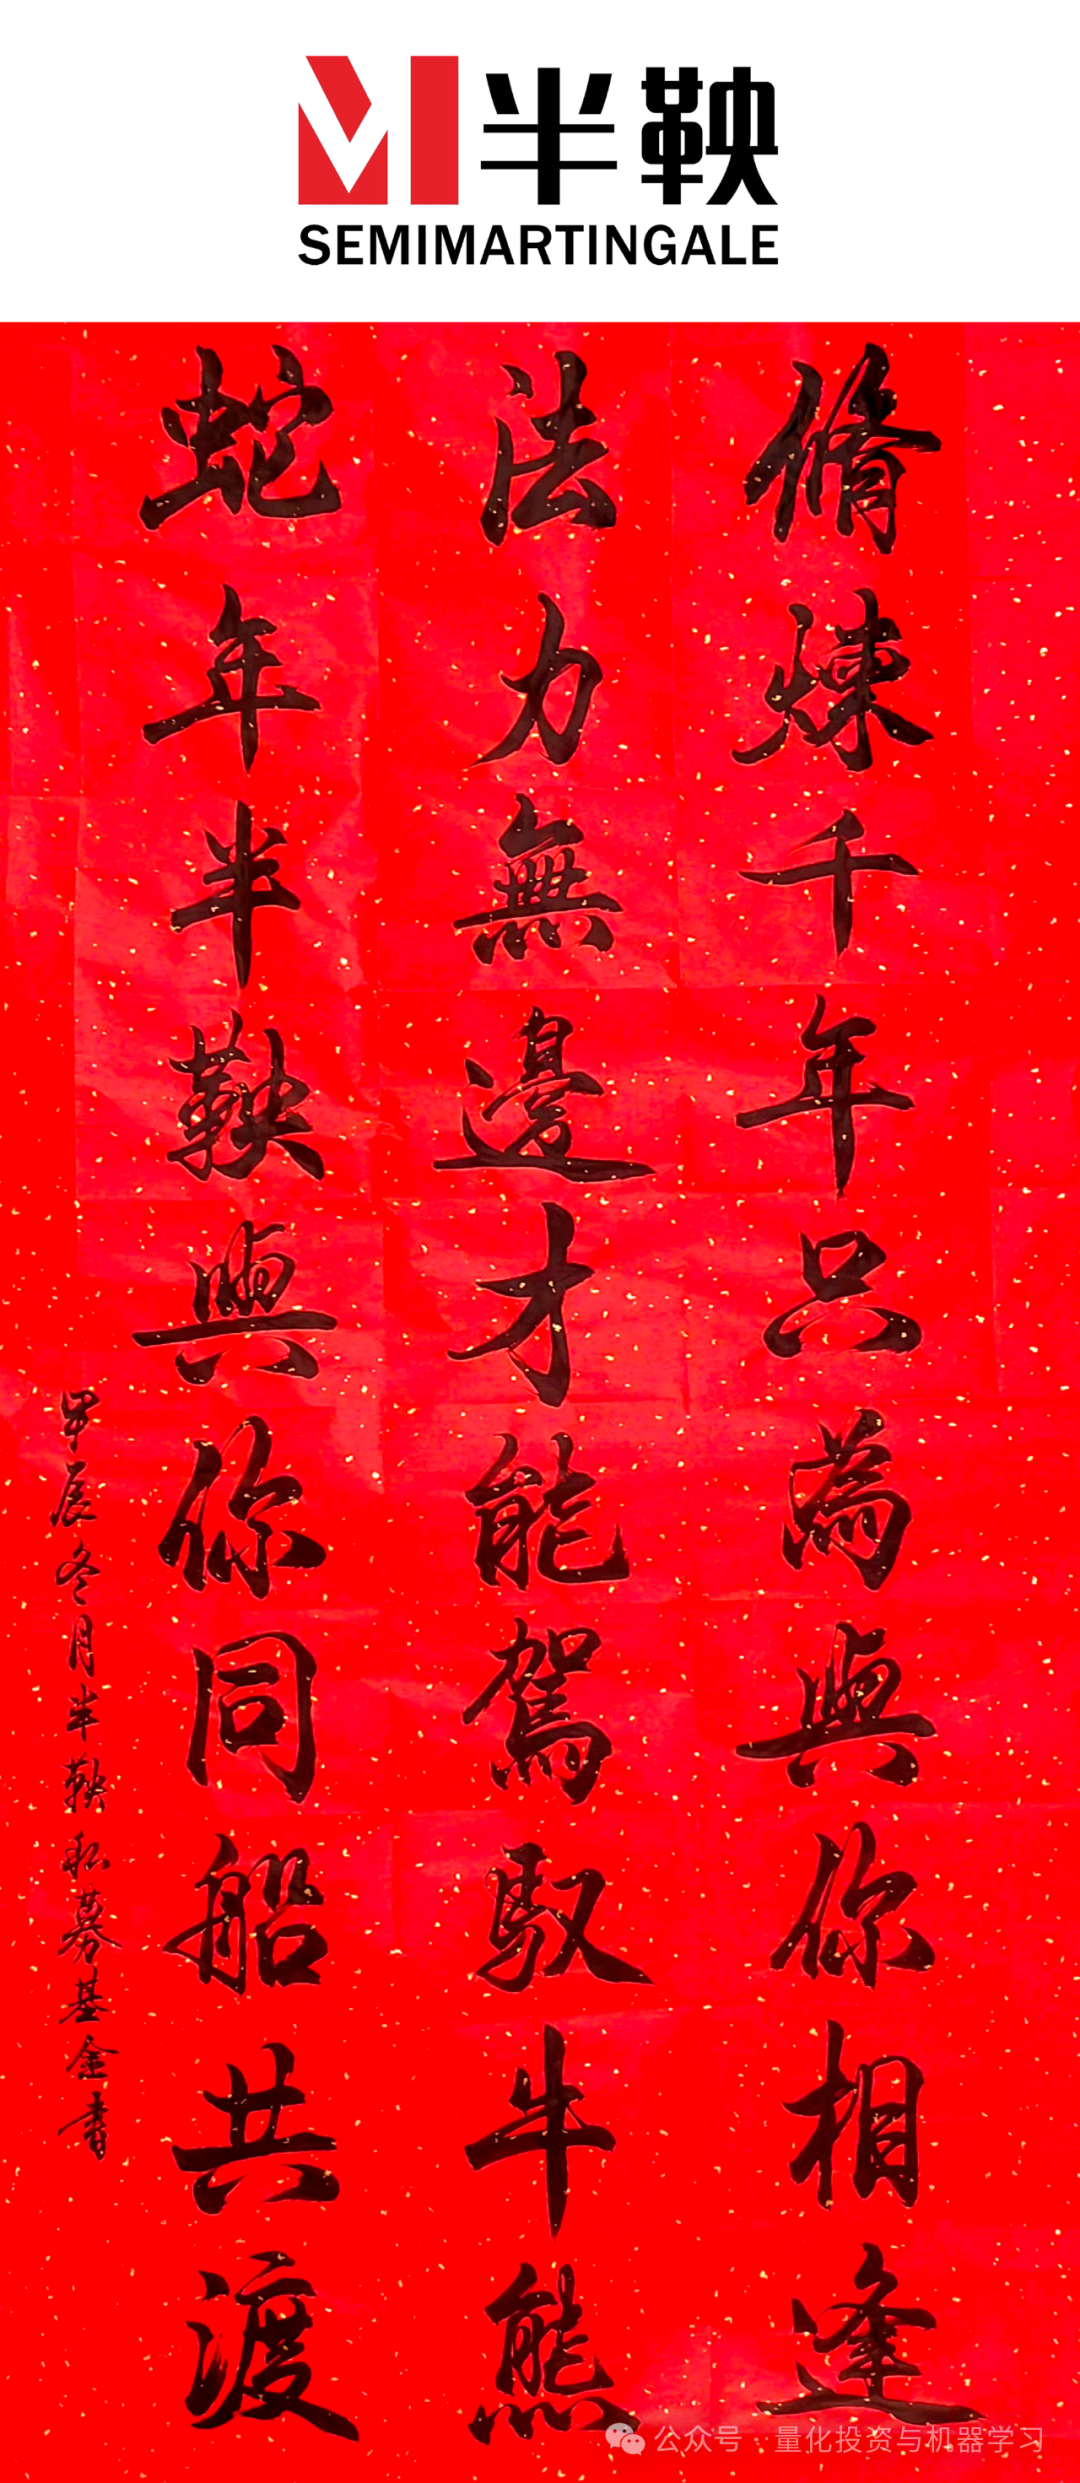 半鞅
SEMIMARTINGALE
脩煉千年只為與你相逢
法力無邊才能駕馭牛熊
蛇年半鞅與你同船共渡
甲辰冬月半鞅私募基金書
公众号 · 量化投资与机器学习